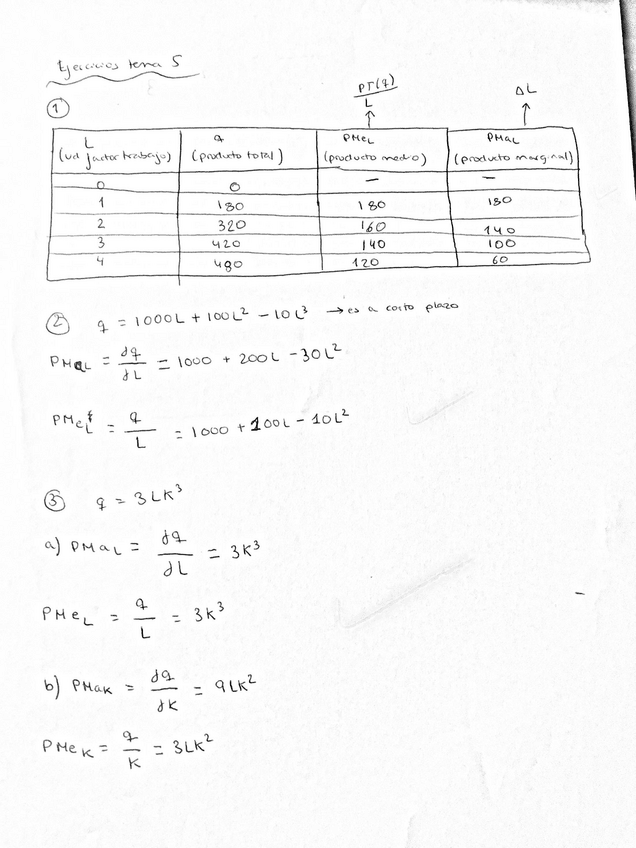 Ejercicios tema 5
PT(q)
L
ΔL
①
L q PMeL PMaL
(ud factor trabajo) (producto total) (producto medio) (producto marginal)
0 0 — —
1 180 180 180
2 320 160 140
3 420 140 100
4 480 120 60
② q = 1000L + 100L² - 10L³ → es a corto plazo
PMaL = ∂q/∂L = 1000 + 200L - 30L²
PMeL = q/L = 1000 + 100L - 10L²
③ q = 3LK³
a) PMaL = ∂q/∂L = 3K³
PMeL = q/L = 3K³
b) PMaK = ∂q/∂K = 9LK²
PMeK = q/K = 3LK²